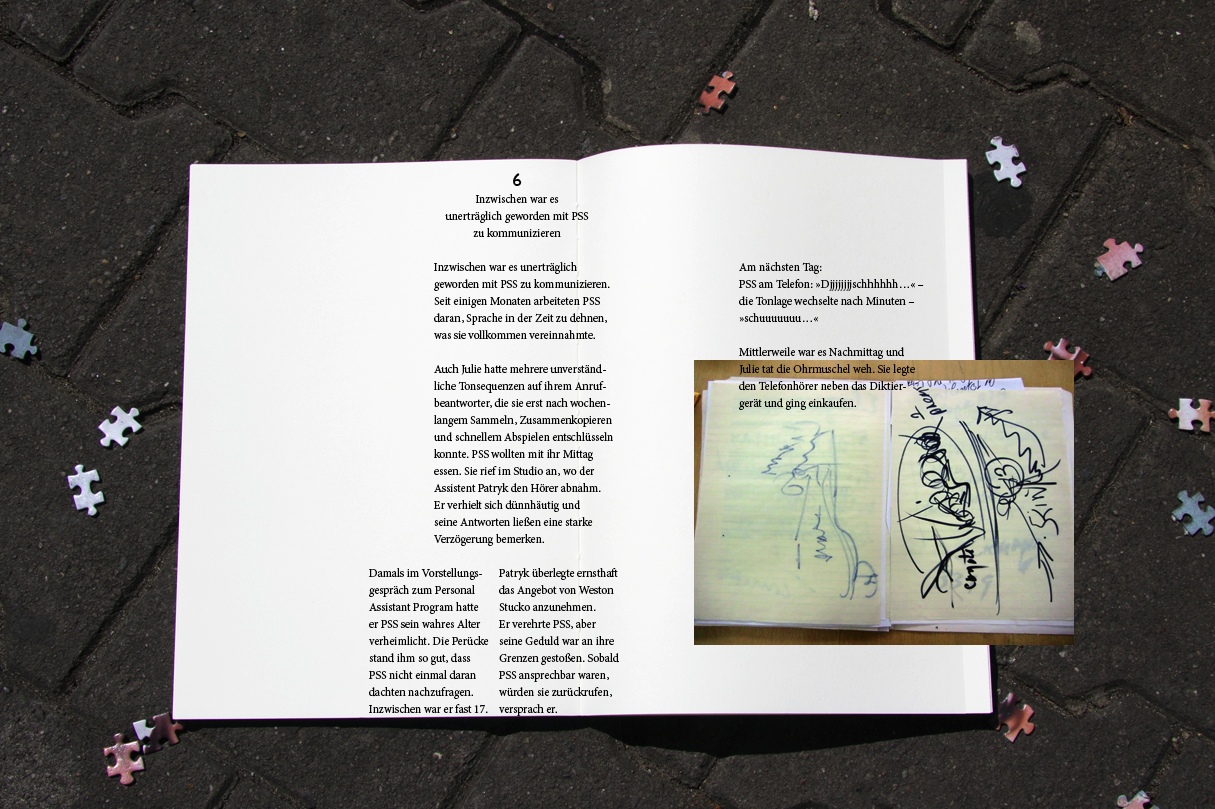 6
Inzwischen war es
unerträglich geworden mit PSS
zu kommunizieren
Inzwischen war es unerträglich
geworden mit PSS zu kommunizieren.
Seit einigen Monaten arbeiteten PSS
daran, Sprache in der Zeit zu dehnen,
was sie vollkommen vereinnahmte.
Auch Julie hatte mehrere unverständ-
liche Tonsequenzen auf ihrem Anruf-
beantworter, die sie erst nach wochen-
langem Sammeln, Zusammenkopieren
und schnellem Abspielen entschlüsseln
konnte. PSS wollten mit ihr Mittag
essen. Sie rief im Studio an, wo der
Assistent Patryk den Hörer abnahm.
Er verhielt sich dünnhäutig und
seine Antworten ließen eine starke
Verzögerung bemerken.
Damals im Vorstellungs-
gespräch zum Personal
Assistant Program hatte
er PSS sein wahres Alter
verheimlicht. Die Perücke
stand ihm so gut, dass
PSS nicht einmal daran
dachten nachzufragen.
Inzwischen war er fast 17.
Patryk überlegte ernsthaft
das Angebot von Weston
Stucko anzunehmen.
Er verehrte PSS, aber
seine Geduld war an ihre
Grenzen gestoßen. Sobald
PSS ansprechbar waren,
würden sie zurückrufen,
versprach er.
Am nächsten Tag:
PSS am Telefon: »Djjjjjjjjschhhhhh…« –
die Tonlage wechselte nach Minuten –
»schuuuuuuu…«
Mittlerweile war es Nachmittag und
Julie tat die Ohrmuschel weh. Sie legte
den Telefonhörer neben das Diktier-
gerät und ging einkaufen.